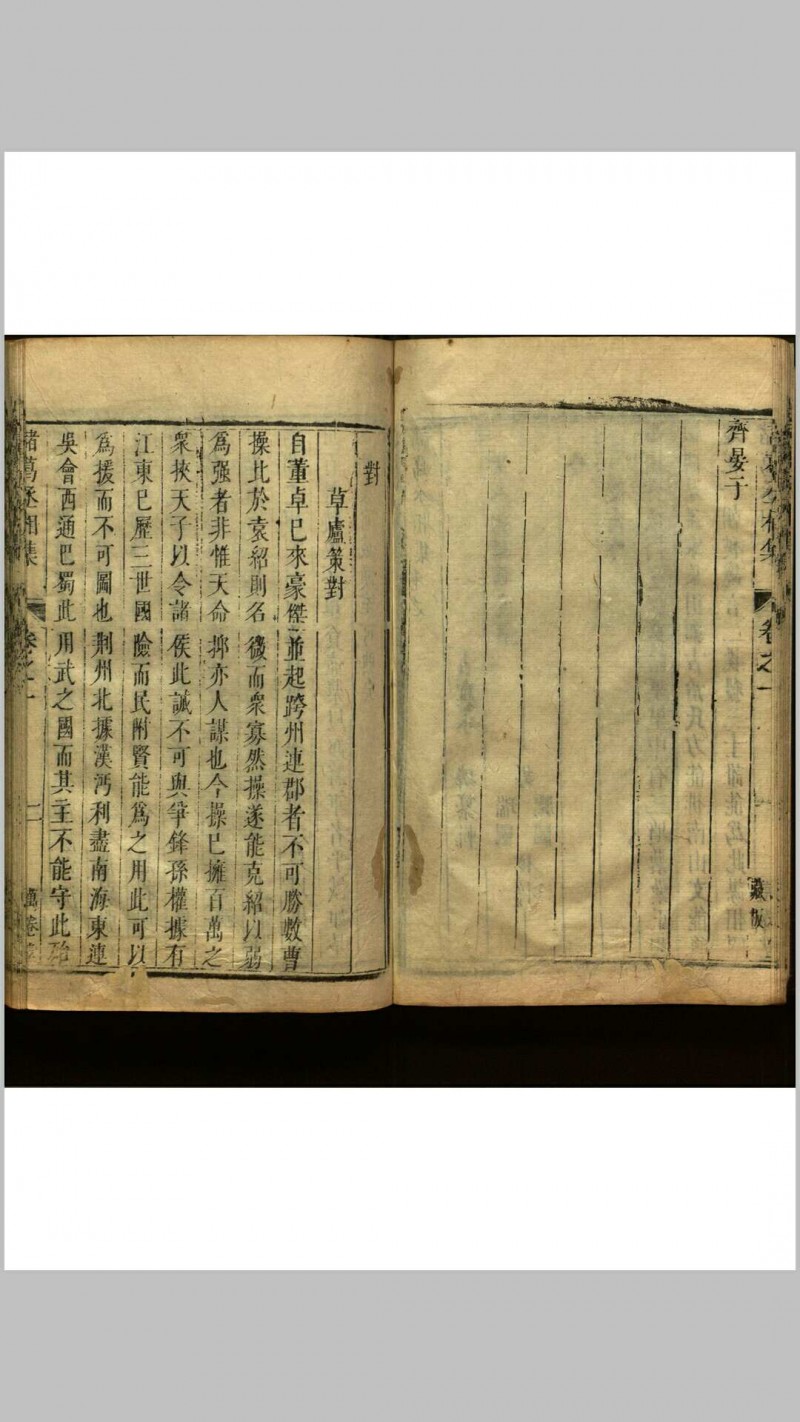 齊晏子
卷之一
藏板
對
草廬策對
自董卓已來豪傑並起跨州連郡者不可勝數曹
操比於袁紹則名微而衆寡然操遂能克紹以弱
爲强者非惟天命抑亦人謀也今操已擁百萬之
衆挾天子以令諸侯此誠不可與爭鋒孫權據有
江東已歷三世國險而民附賢能爲之用此可以
爲援而不可圖也荆州北據漢沔利盡南海東連
吳會西通巴蜀此用武之國而其主不能守此殆
諸葛丞相集
卷之一
二
萬卷